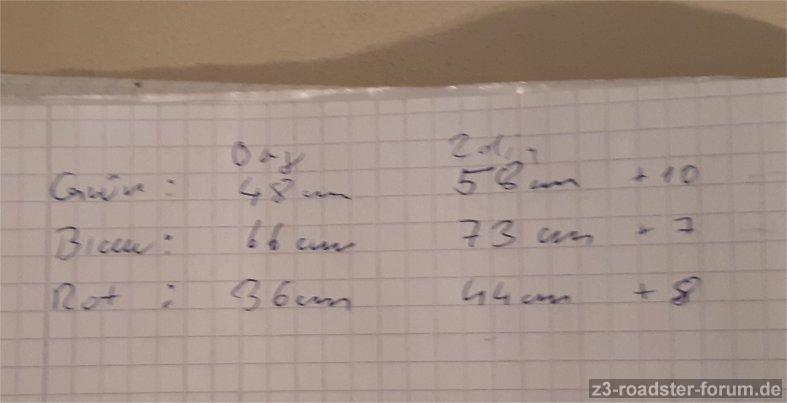 Org
Grün: 48cm 58cm +10
Blau: 66cm 73cm +7
Rot: 36cm 44cm +8
z3-roadster-forum.de